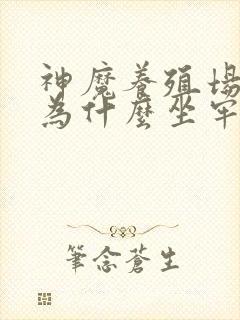 神魔養殖場
為什麼坐牢
筆念蒼生